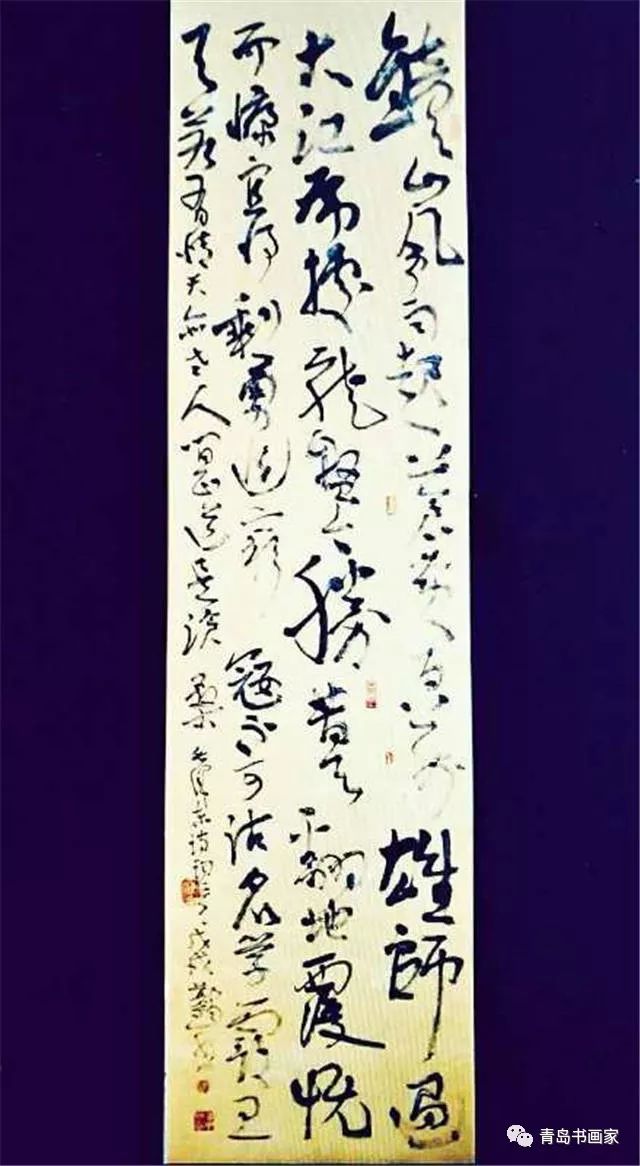 鐘山風雨起蒼黃百萬雄師過
大江虎據龍盤今勝昔天翻地覆慨
而慷宜將剩勇追窮寇不可沽名學霸王
天若有情天亦老人間正道是滄桑 毛澤東詩 戊戌
青岛书画家